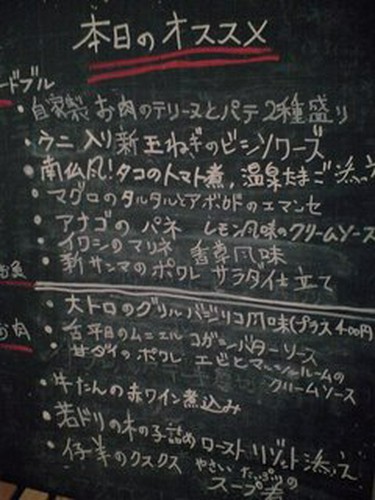 本日のオススメ
ードブル
・自家製 お肉のテリーヌとパテ 2種盛り
・ウニ入り新玉ねぎのビシソワーズ
・南仏風!タコのトマト煮,温泉たまご添え
・マグロのタルタルとアボカドのエマンセ
・アナゴの パネ レモン風味のクリームソース
・イワシのマリネ 香草風味
・新サンマのポワレ サラダ仕立て
お魚
・大トロのグリル バジリコ風味(プラス400円
お肉
・舌平目のムニエル コガシバターソース
・甘ダイのポワレ エビとマッシュルームの
クリームソース
・牛たんの赤ワイン煮込み
・若ドリの木の子詰めロースト リゾット添え
・仔羊のクスクス やさい たっぷりの
スープ煮